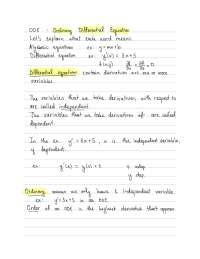 ODE : Ordinary Differential Equation
Let's explain what each word means.
Algebraic equations ex: y = mx+b
Differential equation ex: y'(x) = 3x+5
Differential equation contain derivatives w/r one or more
variables.
The variables that we take derivatives with respect to
are called independent.
The variables that we take derivatives of are called
dependent.
In the ex. y' = 3x+5, x is the independent variable,
y dependent.
ex: y'(x) = y(x)+2
Ordinary means we only have 1 independent variable.
ex: y'=3x+5 is an ODE.
Order of an ODE is the highest derivative that appears